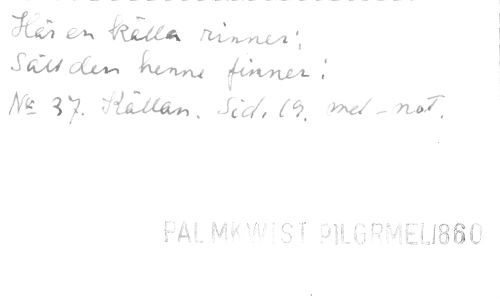 Här en källa rinner;
Säll den henne finner!
No 37. Källan. Sid. 19. mel-not.
PALMKWIST PILGRMEL1860